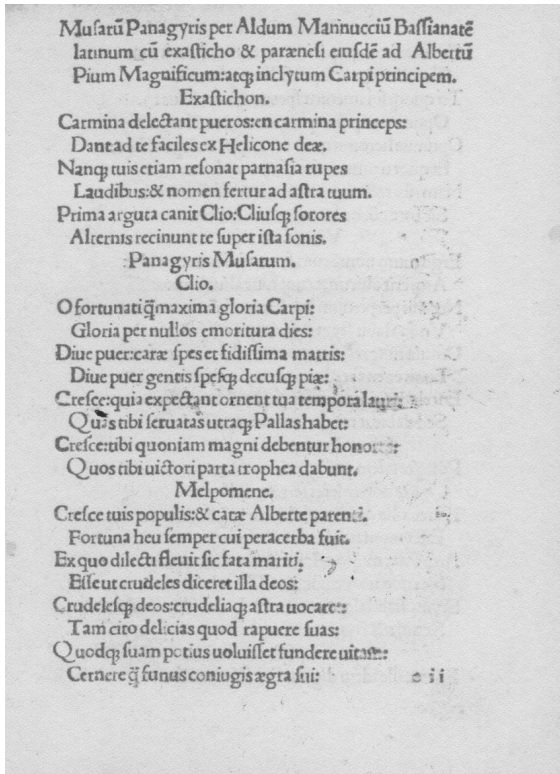 Musarũ Panagyris per Aldum Mannucciũ Bassianatẽ
latinum cũ exasticho & parænesi eiusdẽ ad Albertũ
Pium Magnificum: atqꝫ inclytum Carpi principem.
Exastichon.
Carmina delectant pueros: en carmina princeps:
Dant ad te faciles ex Helicone deæ.
Nanqꝫ tuis etiam resonat parnasia rupes
Laudibus: & nomen fertur ad astra tuum.
Prima arguta canit Clio: Cliusqꝫ sorores
Alternis recinunt te super ista sonis.
Panagyris Musarum.
Clio.
O fortunati q̃ maxima gloria Carpi:
Gloria per nullos emoritura dies:
Diue puer: caræ spes et fidissima matris:
Diue puer gentis spesqꝫ decusqꝫ piæ:
Cresce: quia expectant ornent tua tempora lauri:
Quas tibi seruatas utraqꝫ Pallas habet:
Cresce: tibi quoniam magni debentur honores:
Quos tibi uictori parta trophea dabunt.
Melpomene.
Cresce tuis populis: & caræ Alberte parenti.
Fortuna heu semper cui peracerba fuit.
Ex quo dilecti fleuit sic fata mariti.
Esse ut crudeles diceret illa deos:
Crudelesqꝫ deos: crudeliaqꝫ astra uocaret:
Tam cito delicias quod rapuere suas:
Quodqꝫ suam potius uoluisset fundere uitam:
Cernere q̃ funus coniugis ægra sui:
e ii